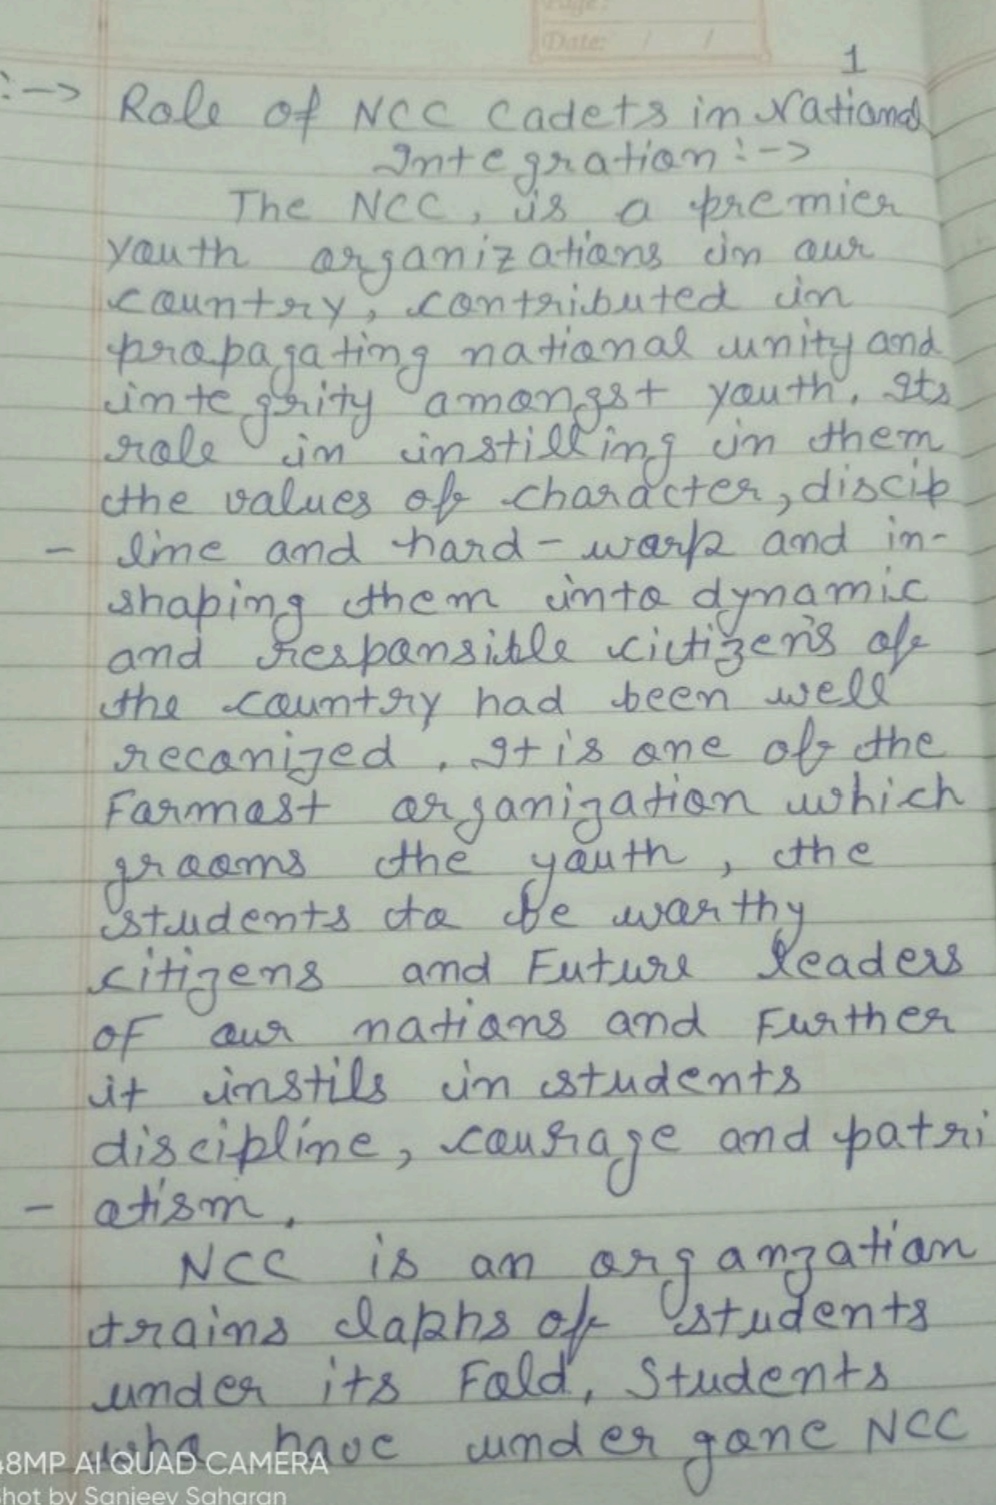 Page:
Date: / /
1
:-> Role of NCC Cadets in National
Integration :->
The NCC, is a premier
youth organizations in our
country, contributed in
propagating national unity and
integrity amongst youth. Its
role in instilling in them
the values of character, discip
- line and hard-work and in-
shaping them into dynamic
and responsible citizens of
the country had been well
reconized. It is one of the
Formost organization which
grooms the youth, the
students to be worthy
citizens and Future leaders
of our nations and Further
it instils in students
discipline, courage and patri
- otism.
NCC is an organzation
trains lakhs of students
under its Fold, Students
who have under gone NCC
48MP AI QUAD CAMERA
Shot by Sanjeev Saharan